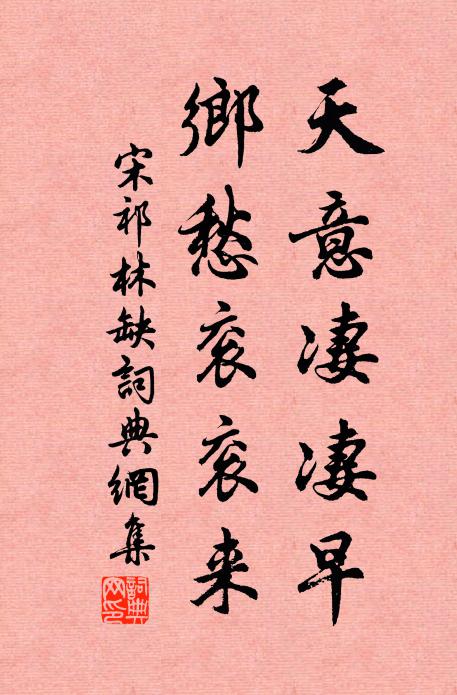 天意凄凄早
鄉愁衮衮来
宋祁林缺詞典網集
詞典網印